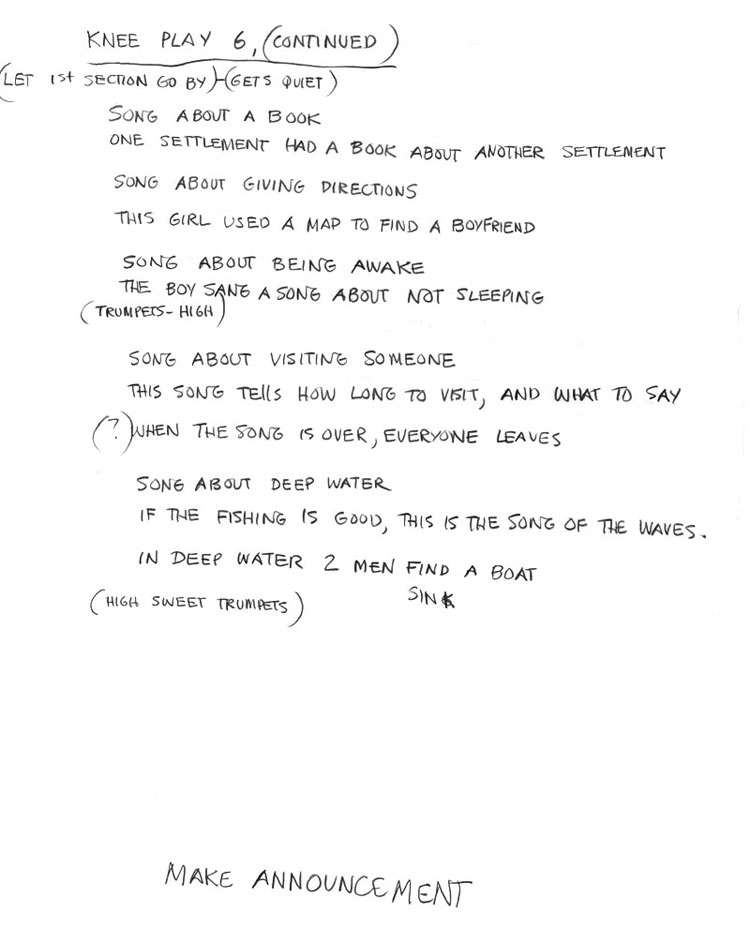 KNEE PLAY 6, (CONTINUED)
(LET 1st SECTION GO BY)-(GETS QUIET)
SONG ABOUT A BOOK
ONE SETTLEMENT HAD A BOOK ABOUT ANOTHER SETTLEMENT
SONG ABOUT GIVING DIRECTIONS
THIS GIRL USED A MAP TO FIND A BOYFRIEND
SONG ABOUT BEING AWAKE
THE BOY SANG A SONG ABOUT NOT SLEEPING
(TRUMPETS-HIGH)
SONG ABOUT VISITING SOMEONE
THIS SONG TELLS HOW LONG TO VISIT, AND WHAT TO SAY
(?) WHEN THE SONG IS OVER, EVERYONE LEAVES
SONG ABOUT DEEP WATER
IF THE FISHING IS GOOD, THIS IS THE SONG OF THE WAVES.
IN DEEP WATER 2 MEN FIND A BOAT
SINK
(HIGH SWEET TRUMPETS)
MAKE ANNOUNCEMENT